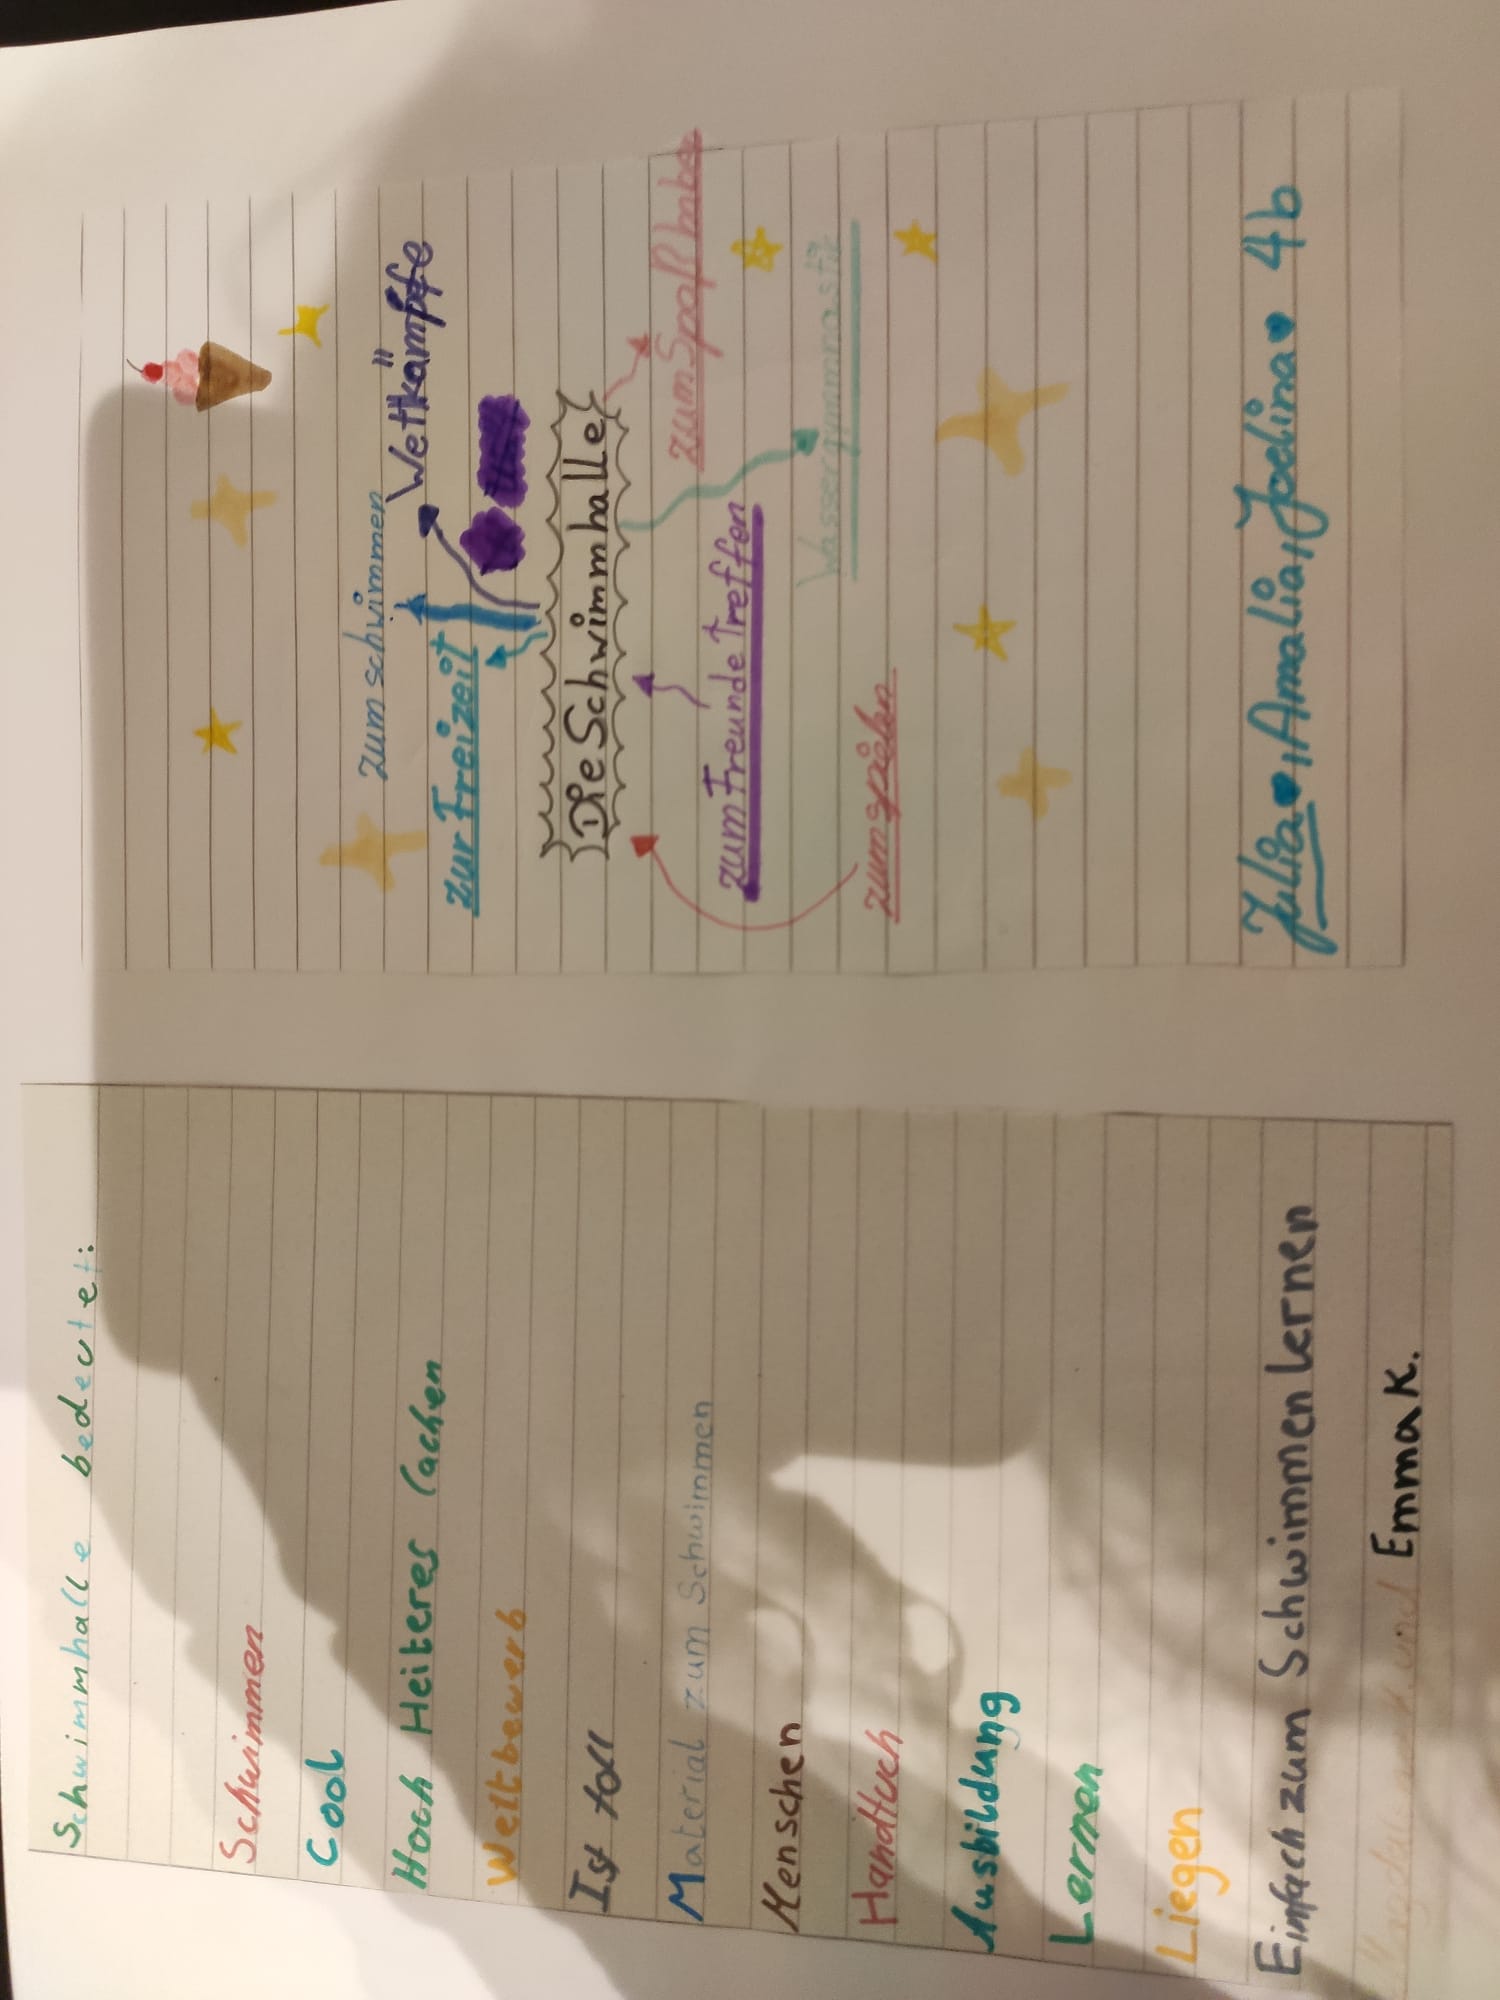 Schwimmhalle bedeutet:
Schwimmen
Cool
Hoch Heiteres lachen
Weltbewerb
Ist toll
Material zum Schwimmen
Menschen
Handtuch
Ausbildung
Lernen
Liegen
Einfach zum Schwimmen lernen
und Emma K.
zum schwimmen
Wettkämpfe
zur Freizeit
Die Schwimmhalle
zum Spaß haben
zum Freunde Treffen
Wassergymnastik
zum spielen
Julia, Amalia, Joelina 4b